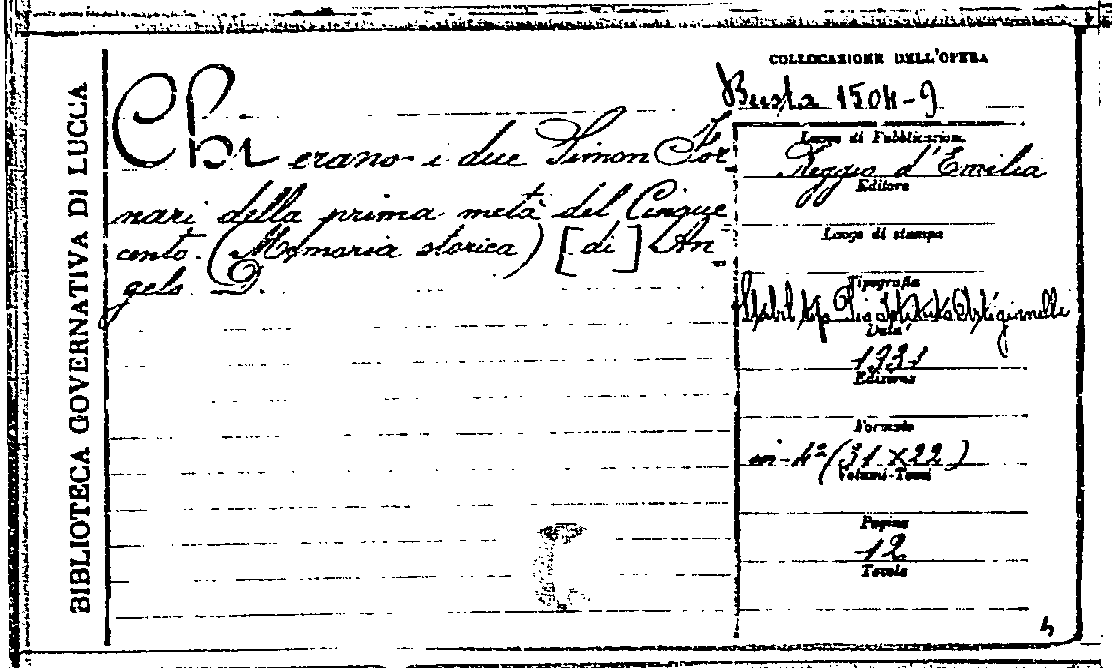 BIBLIOTECA GOVERNATIVA DI LUCCA
Chi erano i due Simon For-
nari della prima metà del Cinque
cento. (Memoria storica) [di] An-
gelo D.
COLLOCAZIONE DELL'OPERA
Busta 1504-9
Luogo di Pubblicazione
Reggio d'Emilia
Editore
Luogo di stampa
Tipografia
Stabil. tip. Pio Istituto Artigianelli
Data
1931
Edizione
Formato
in-4º (31 X 22)
Volumi-Tomi
Pagine
12
Tavole